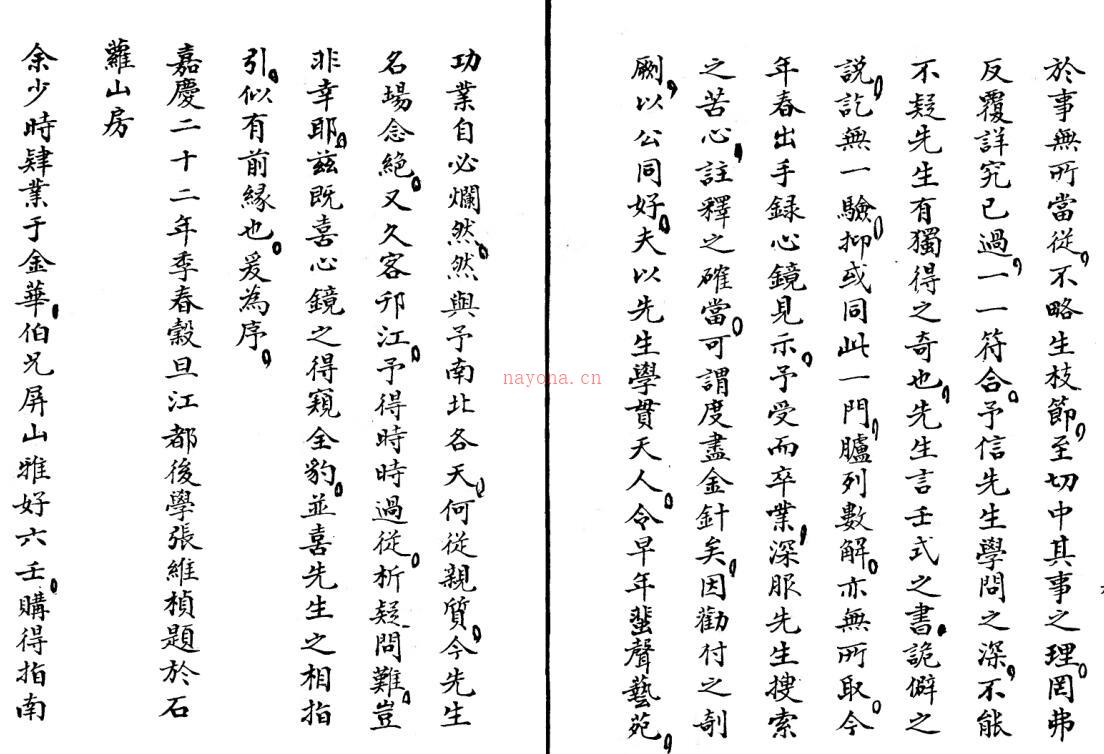 於事無所當從不略生枝節至切中其事之理罔弗
反覆詳究已過一一符合予信先生學問之深不能
不疑先生有獨得之奇也先生言壬式之書詭僻之
説訖無一驗抑或同此一門臚列數解亦無所取今
年春出手録心鏡見示予受而卒業深服先生搜索
之苦心註釋之確當可謂度盡金針矣因勸付之剞
劂以公同好夫以先生學貫天人令早年蜚聲藝苑
功業自必爛然然與予南北各天何從親質今先生
名場念絶又久客邗江予得時時過從析疑問難豈
非幸耶兹既喜心鏡之得窺全豹並喜先生之相指
引似有前縁也爰為序
嘉慶二十二年季春穀旦江都後學張維楨題於石
蘿山房
余少時肄業于金華伯兄屏山雅好六壬購得指南
nayona.cn